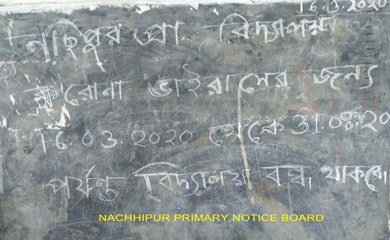 16.3.2020
নাছিপুর প্রা. বিদ্যালয়
করোনা ভাইরাসের জন্যে
16.03.2020 থেকে 31.03.20
পর্যন্ত বিদ্যালয় বন্ধ থাকবে।
NACHHIPUR PRIMARY NOTICE BOARD